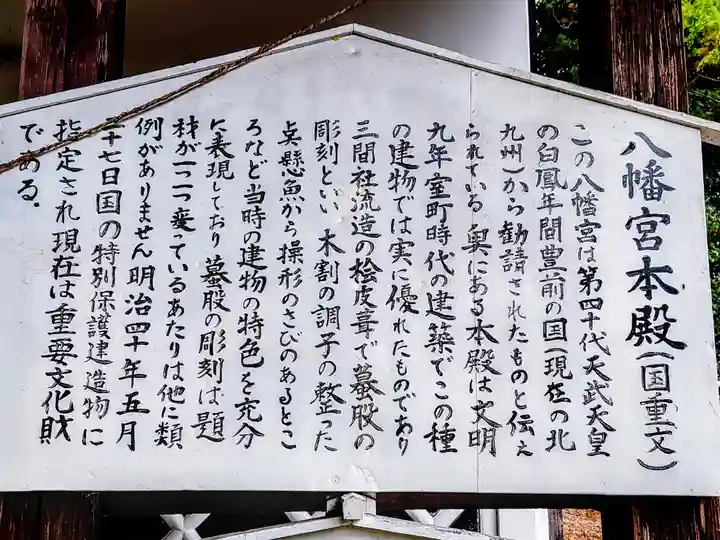 八幡宮本殿（国重文）
この八幡宮は第四十代天武天皇
の白鳳年間豊前の国（現在の北
九州）から勧請されたものと伝え
られている 奥にある本殿は文明
九年室町時代の建築でこの種
の建物では実に優れたものであり
三間社流造の桧皮葺で蟇股の
彫刻といい 木割の調子の整った
点懸魚から操形のさびのあるとこ
ろなど当時の建物の特色を充分
に表現しており 蟇股の彫刻は題
材が一つ一つ変っているあたりは他に類
例がありません明治四十年五月
二十七日国の特別保護建造物に
指定され現在は重要文化財
である。